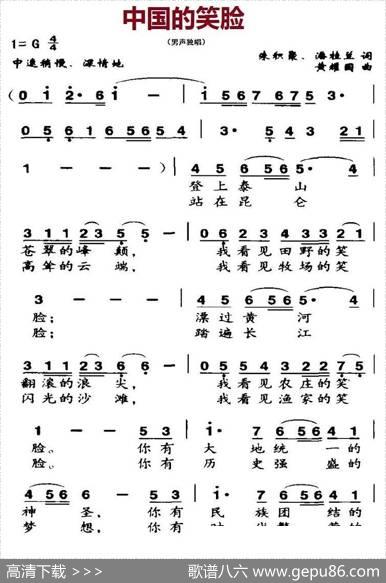 中国的笑脸
1=G 4/4
（男声独唱）
中速稍慢、深情地
朱积聚、潘桂兰 词
黄耀国 曲
(0 i 2·6 i - | i 567 6 7 ·
0 5 6 1 6 565 | 3· 5 - | 3·2 3 5 2 -
1 - - - ) | 4 5 6 565 · 4
登上泰山
站在昆仑
3 1 1 1 23 5 5 | 0 6 2 3 4 3 321
苍翠的峰巅， 我看见田野的笑
高耸的云端， 我看见牧场的笑
3 - - - | 4 5 6 565 · 4
脸； 漂过黄河
脸； 踏遍长江
3 1 1 1 23 6 6 | 0 5 4 3 2 2 7 5
翻滚的浪尖， 我看见农庄的笑
闪光的沙滩， 我看见渔家的笑
1 - - 53 | i· 7 6 56 5 5
脸。 你有 大地统一的
脸。 你有 历史强盛的
4 5 56 53 | i· 7 6 56 6 4
神圣，你有 民族团结的
梦想，你有
高清下载 >>>
歌谱八六 www.gepu86.com